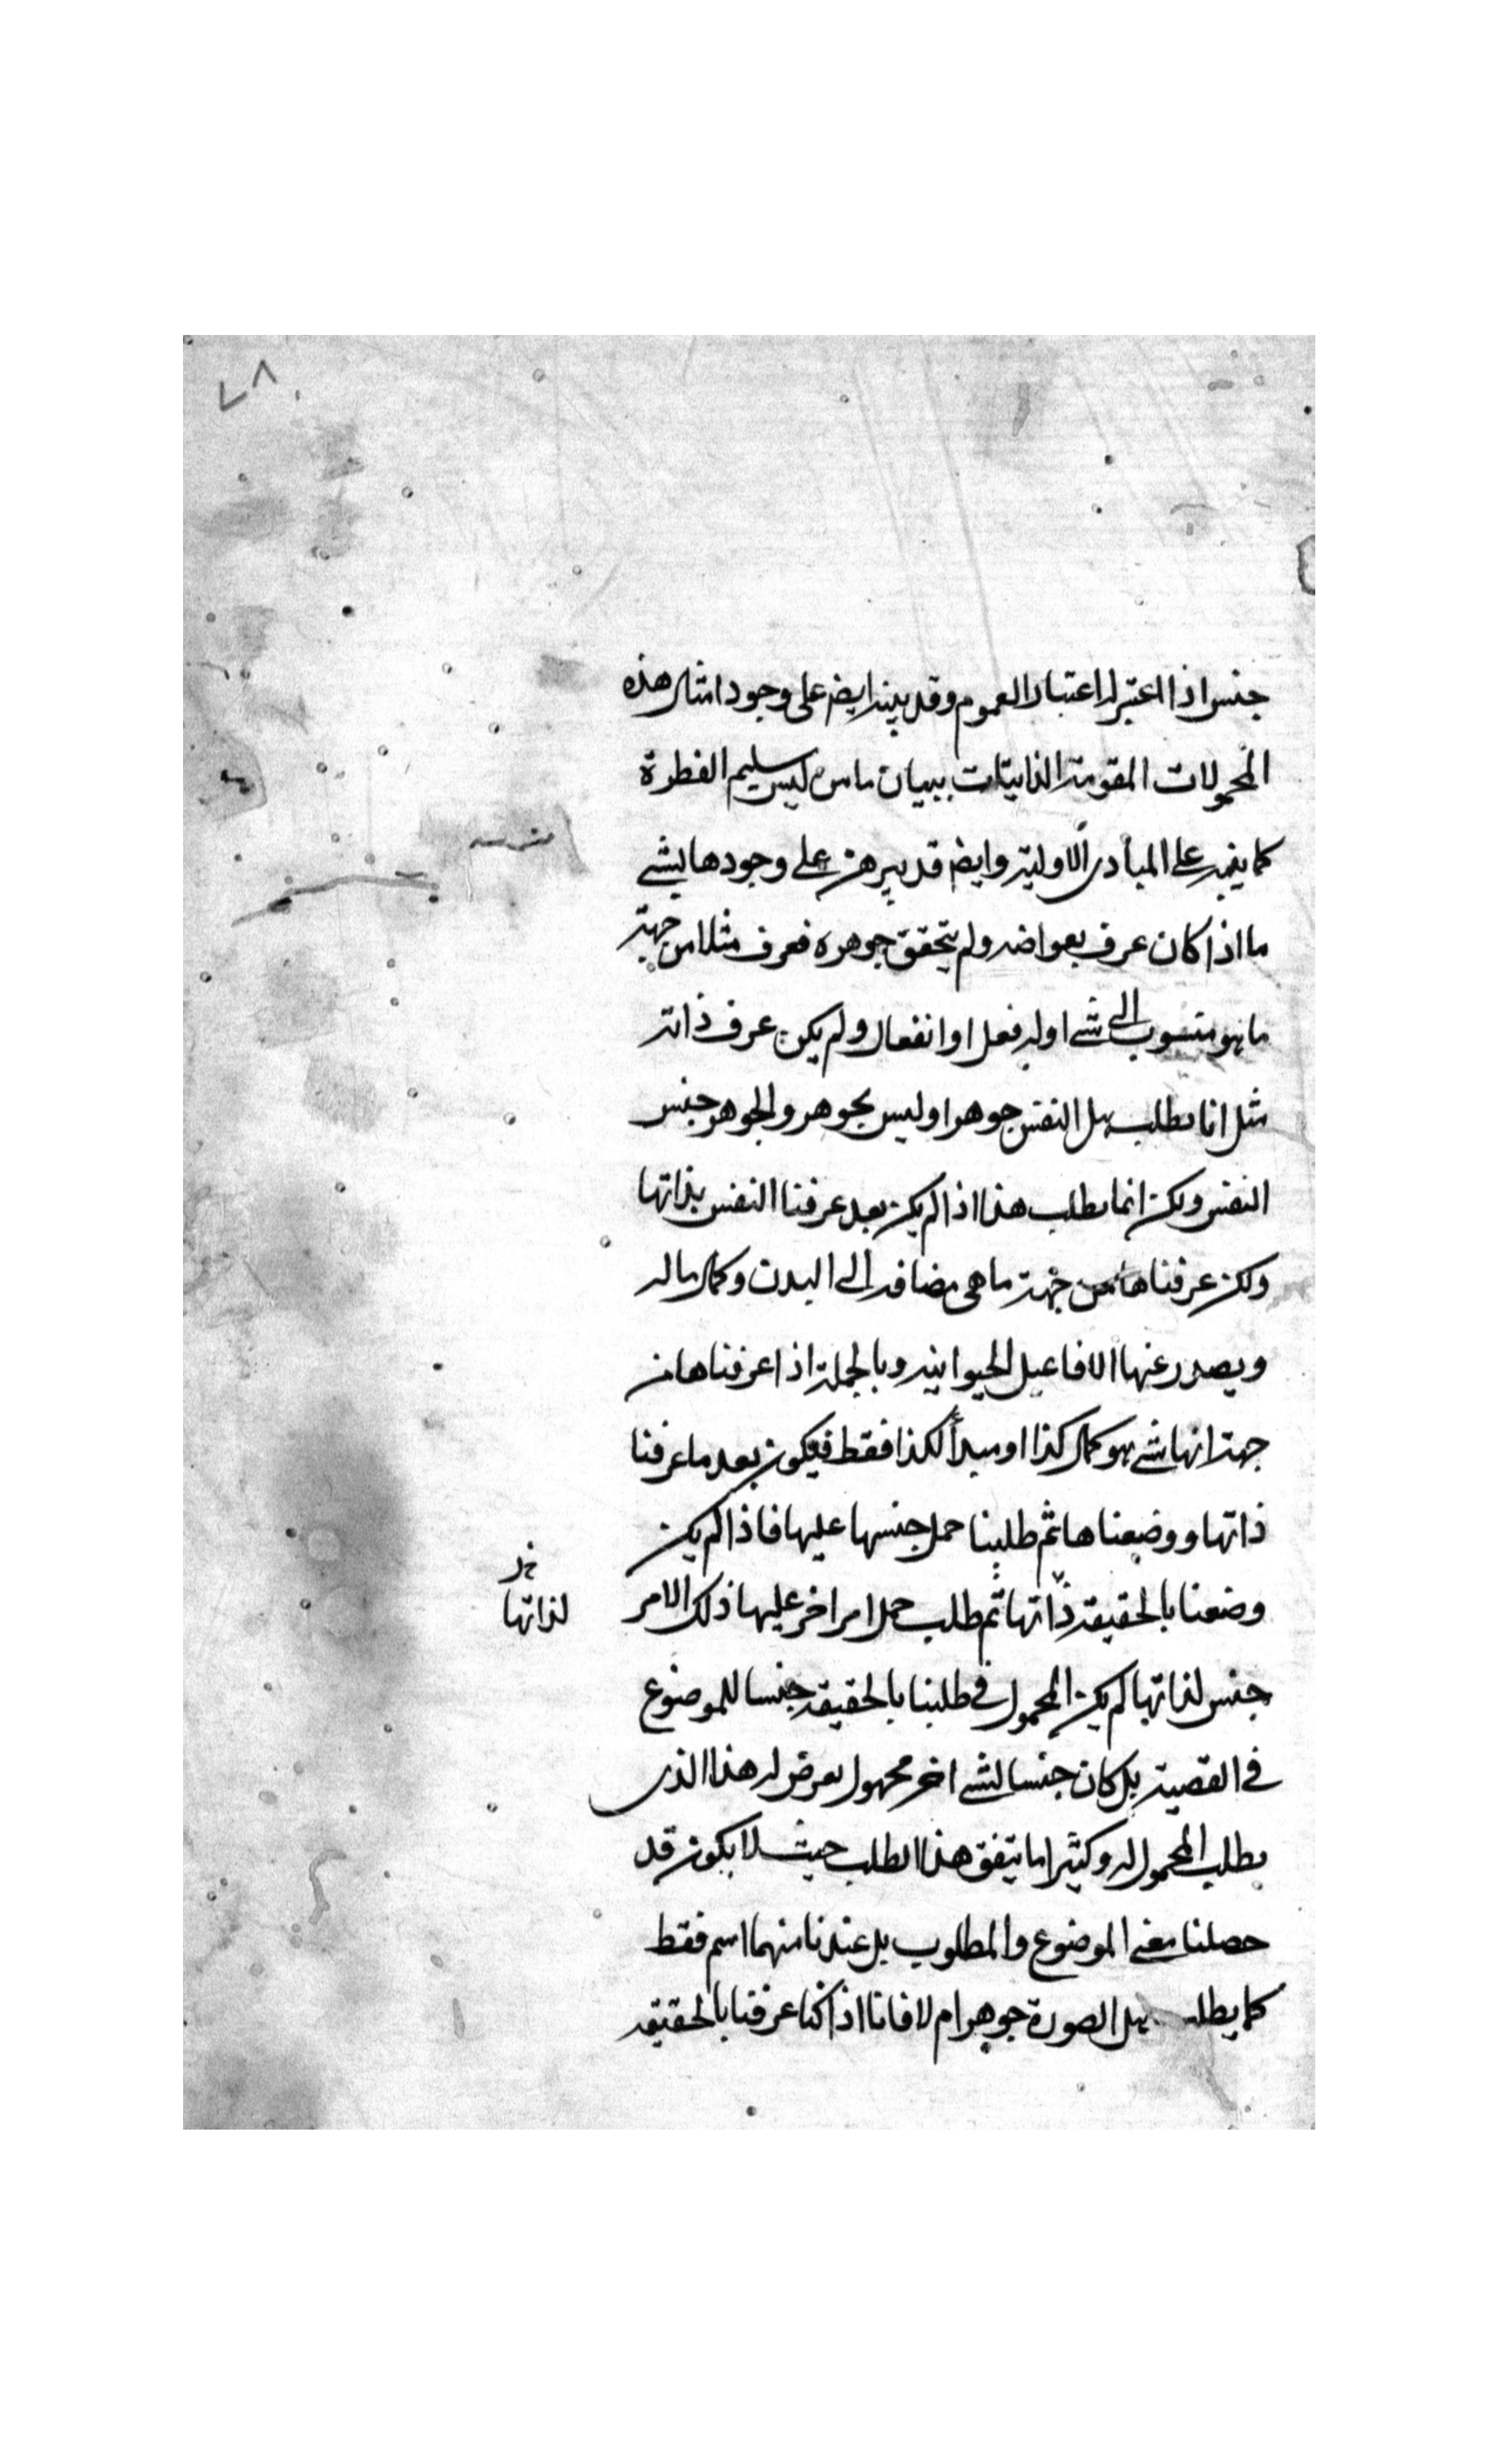 ٧٨
جنس اذا اعتبر له اعتبار العموم وقد ينبه ايضا على وجود امثال هذه
المحمولات المقومة الذاتيات ببيان ما من ليس سليم الفطرة
كما ينبه على المبادى الاولية وايضا قد يبرهن على وجودها لشے
ما اذا كان عرف بعواضه ولم يتحقق جوهره فعرف مثلا من جهة
ما هو منسوب الى شے او له فعل او انفعال ولم يكن عرف ذاته
مثل انا نطلب هل النفس جوهر او ليس بجوهر والجوهر جنس
النفس ولكن انما نطلب هذا اذا لم يكن بعد عرفنا النفس بذاتها
ولكن عرفناها من جهة ما هى مضافه الى البدن وكمال ما له
ويصدر عنها الافاعيل الحيوانيه وبالجملة اذا عرفناها من
جهة انها شے هو كمال كذا او مبدأ لكذا فقط فيكون بعد ما عرفنا
ذاتها ووضعناها ثم طلبنا حمل جنسها عليها فاذا لم يكن
وضعنا بالحقيقه ذاتها ثم طلب حمل امر اخر عليها ذلك الامر
لذاتها
جنس لذاتها لم يكن المحمول فى طلبنا بالحقيقه جنسا للموضوع
فى القضية بل كان جنسا لشے اخر مجهول يعرض له هذا الذى
يطلب المحمول له وكثيرا ما يتفق هذا الطلب حيث لا يكون قد
حصلنا معنى الموضوع والمطلوب بل عندنا منهما اسم فقط
كما يطلب هل الصورة جوهر ام لا فانا اذا كنا عرفنا بالحقيقه